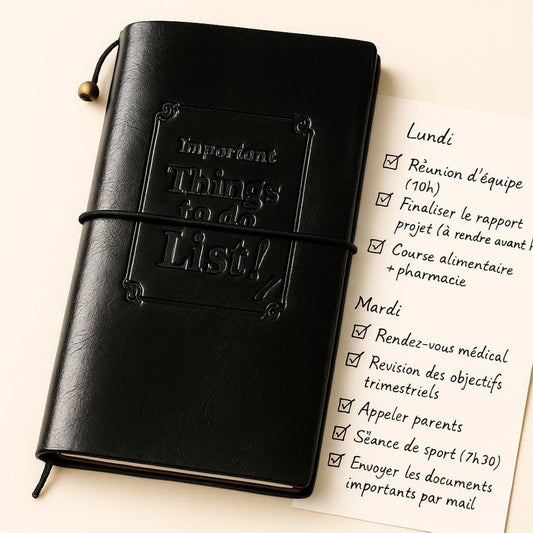 Important
Things
to do
List!
Lundi
☑ Réunion d'équipe
(10h)
☑ Finaliser le rapport
projet (à rendre avant
☑ Course alimentaire
+ pharmacie
Mardi
☑ Rendez-vous médical
☑ Revision des objectifs
trimestriels
☑ Appeler parents
☑ Séance de sport (7h30)
☑ Envoyer les documents
importants par mail